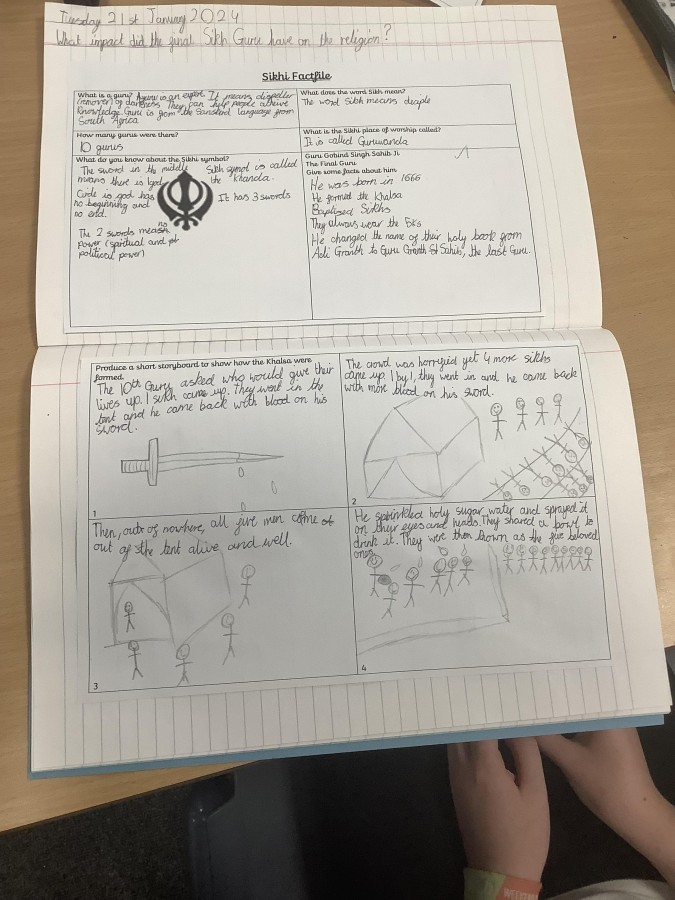 Tuesday 21st January 2024
What impact did the final Sikh Guru have on the religion?
Sikhi Factfile
What is a guru? A guru is an expert. It means dispeller
(remover) of darkness. They can help people achieve
knowledge. Guru is from the Sanskrit language from
South Africa
What does the word Sikh mean?
The word Sikh means disciple
How many gurus were there?
10 gurus
What is the Sikhi place of worship called?
It is called Guruwanda
What do you know about the Sikhi symbol?
The sword in the middle
means there is 1 god
Circle is god has
no beginning and
no end.
The 2 swords mean
power (spiritual and
political power)
Sikh symbol is called
the Khanda.
It has 3 swords
Guru Gobind Singh Sahib Ji
The Final Guru
Give some facts about him
He was born in 1666
He formed the Khalsa
Baptised Sikhs
They always wear the 5k's
He changed the name of their holy book from
Adi Granth to Guru Granth Sahib, the last Guru.
Produce a short storyboard to show how the Khalsa were
formed.
The 10th Guru asked who would give their
lives up. 1 sikh came up. They went in the
tent and he came back with blood on his
sword.
1
The crowd was horryfid yet 4 more sikhs
came up. 1 by 1, they went in and he came back
with more blood on his sword.
2
Then, out of nowhere, all five men came
out of the tent alive and well.
3
He sprinkled holy sugar water and sprayed it
on their eyes and heads. They shared a bowl to
drink it. They were then known as the five beloved
ones.
4